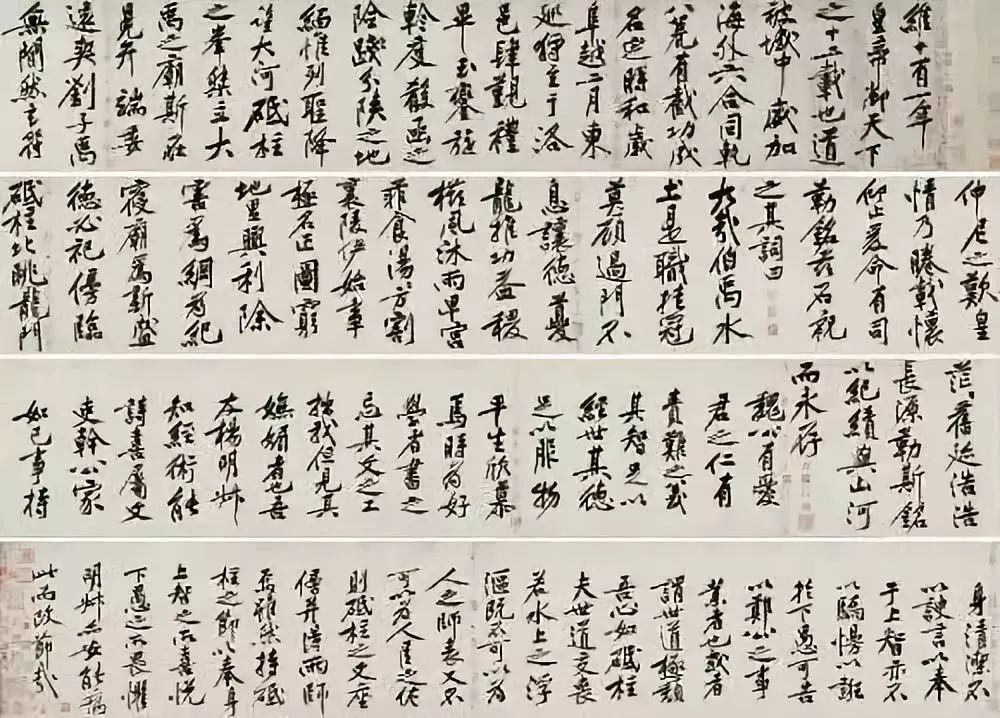 維十有一年
皇帝御天下
之十二載也道
被域中威加
海外六合同軌
八荒有截功成
名定時和歲
阜越二月東
巡狩至于洛
邑肆覲禮
畢玉鑾旋
軫度殽函之
險踐分陝之地
緬惟列聖降
望大河砥柱
之峯桀立大
禹之廟斯在
晃弁端委
遠契劉子禹
無閒然玄符
仲尼之歎皇
情乃睠載懷
仰止爰命有司
勒銘茲石祝
之其詞曰
大哉伯禹水
土是職挂冠
莫顧過門不
息讓德夔
龍推功益稷
櫛風沐雨卑宮
菲食湯〻方割
襄陵伊始事
極名正圖窮
地里興利除
害爲綱爲紀
寢廟爲新盛
德必祀傍臨
砥柱北眺龍門
茫〻舊迹浩浩
長源勒斯銘
以紀績與山河
而永存
魏公有愛
君之仁有
責難之義
其智足以
經世其德
足以服物
平生欣慕
焉時爲好
學者書之
忘其文之工
拙我但見其
嫵媚者也吾
友楊明叔
知經術能
詩喜屬文
吏幹公家
如己事持
身清潔不
以諛言以奉
于上智亦不
以驕慢以誑
於下愚可告
以鄭公之事
業者也或者
謂世道極頹
吾心如砥柱
夫世道交喪
若水上之浮
漚既不可以爲
人之師表又不
可以爲人臣之佐
則砥柱之文座
傍并得兩師
焉雖然持砥
柱之節以奉身
上智之所喜悅
下愚之所畏懼
明叔亦安能病
此而改節哉